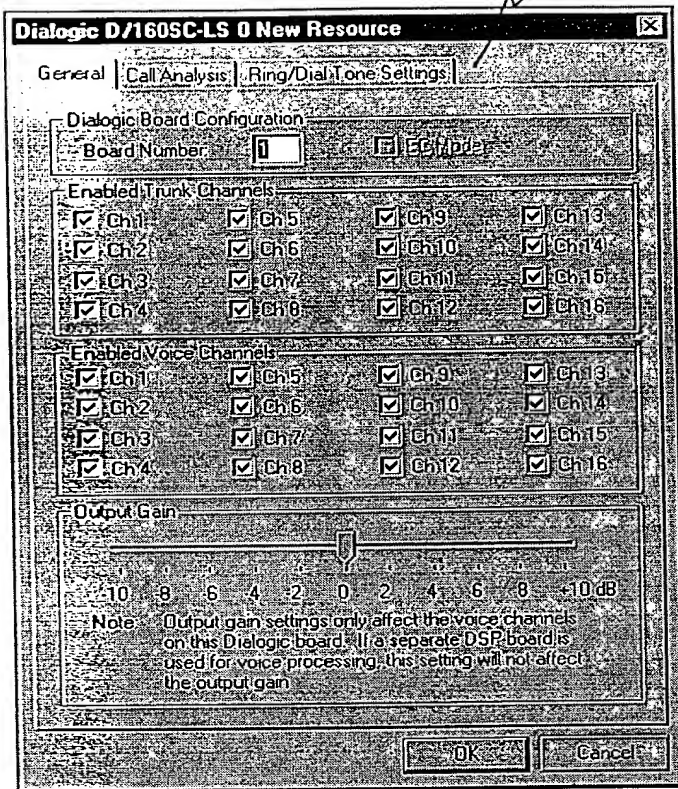 Dialogic D/160SC-LS 0 New Resource
General Call Analysis Ring/Dial Tone Settings
Dialogic Board Configuration
Board Number: 1 EC Mode
Enabled Trunk Channels
Ch 1 Ch 5 Ch 9 Ch 13
Ch 2 Ch 6 Ch 10 Ch 14
Ch 3 Ch 7 Ch 11 Ch 15
Ch 4 Ch 8 Ch 12 Ch 16
Enabled Voice Channels
Ch 1 Ch 5 Ch 9 Ch 13
Ch 2 Ch 6 Ch 10 Ch 14
Ch 3 Ch 7 Ch 11 Ch 15
Ch 4 Ch 8 Ch 12 Ch 16
Output Gain
-10 -8 -6 -4 -2 0 2 4 6 8 +10 dB
Note: Output gain settings only affect the voice channels
on this Dialogic board. If a separate DSP board is
used for voice processing, this setting will not affect
the output gain
OK Cancel